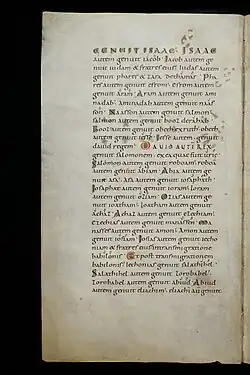 GENUIT ISAAC ISAAC
autem genuit iacob Iacob autem ge
nuit iudam & fratres eius Iudas autem
genuit phares & zara dethamar Pha
res autem genuit esrom esrom autem
genuit aram Aram autem genuit ami
nadab Aminadab autem genuit naas
son Naasson autem genuit salmon
salmon autem genuit booz derachab
Booz autem genuit obeth exruth obeth
autem genuit iesse Iesse autem genuit
david regem DAVID AUT REX
genuit salomonem ex ea quae fuit uriae
Salomon autem genuit roboam roboam
autem genuit abiam Abia autem ge
nuit asa asa autem genuit iosaphath
Iosaphat autem genuit ioram Ioram
autem genuit oziam Ozias autem ge
nuit ioatham Ioatham autem genuit
achaz Achaz autem genuit ezechiam
ezechias autem genuit manassen Ma
nasses autem genuit amon Amon autem
genuit iosiam Iosias autem genuit iecho
niam & fratres eius in transmigratione
babilonis Et post transmigrationem
babilonis Iechonias genuit salathihel
Salathihel autem genuit zorobabel
zorobabel autem genuit abiud Abiud
autem genuit eliachim eliachi aut genuit